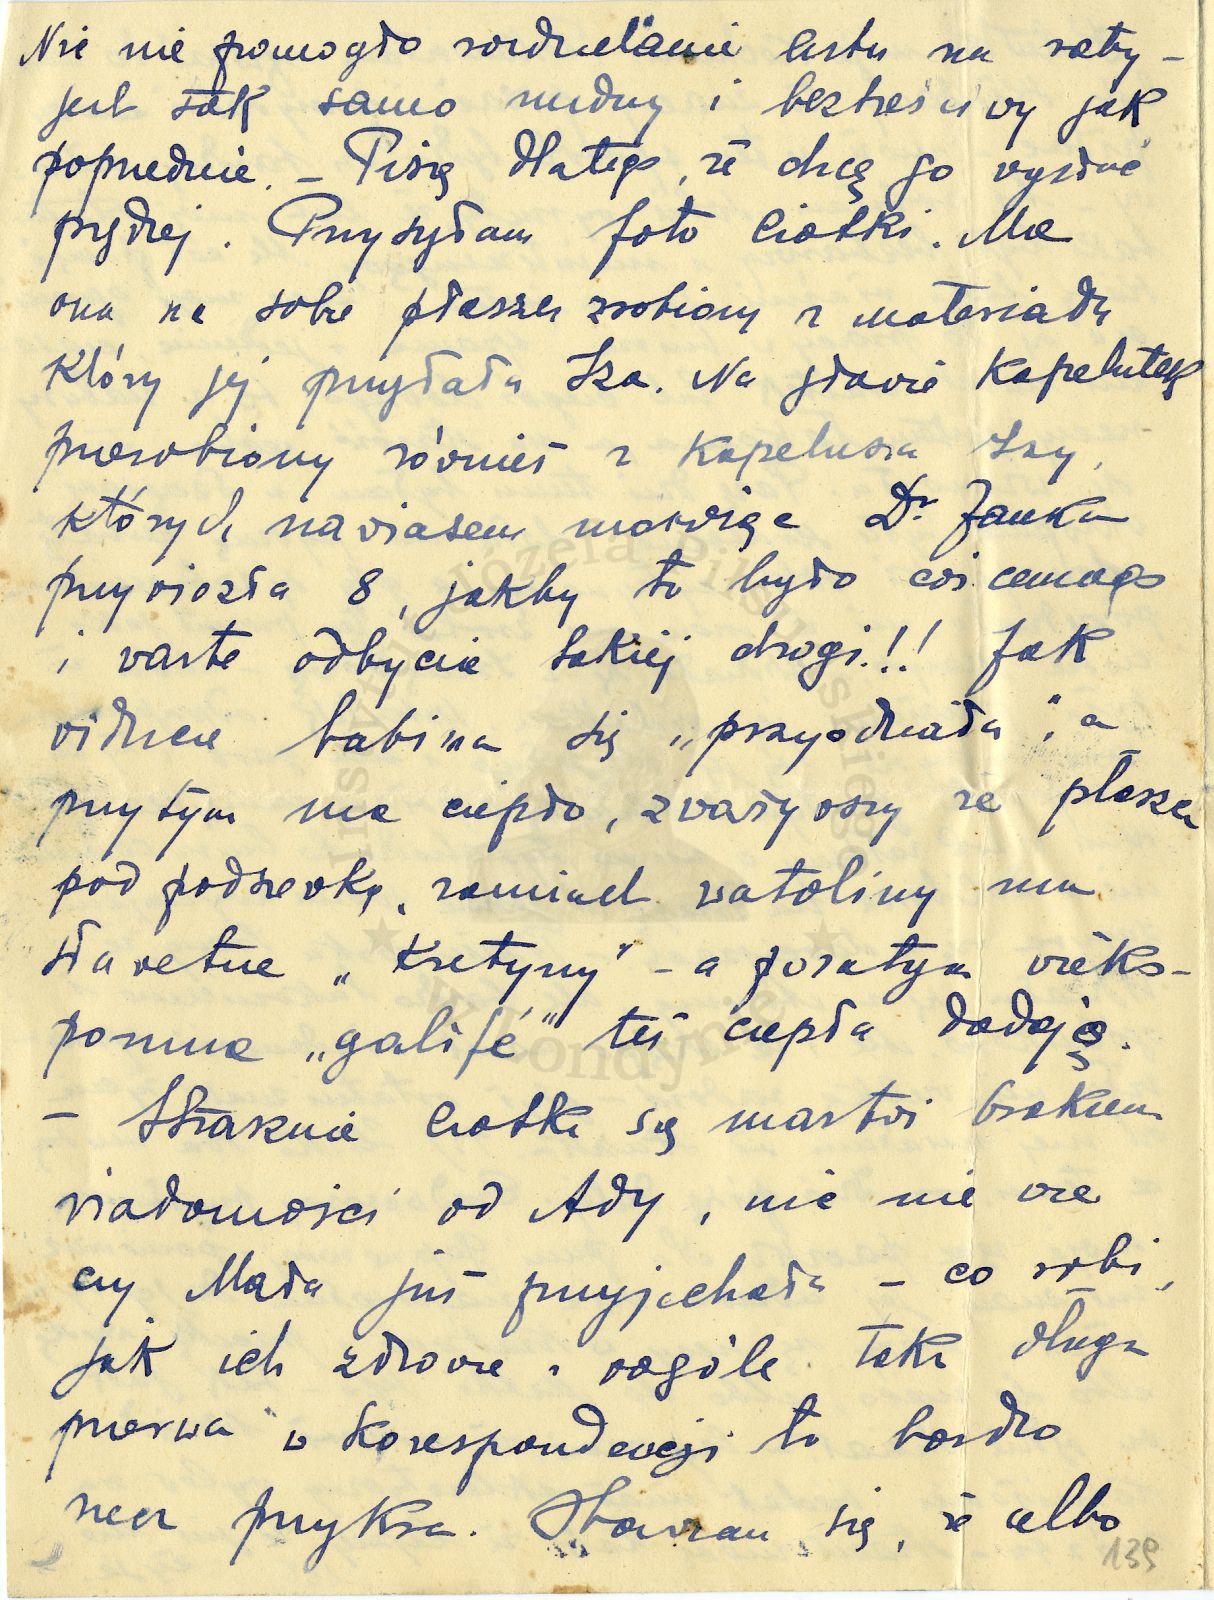 Nic nie pomogło rozdzielanie listu na raty –
jest tak samo nudny i beztreściwy jak
poprzednie. – Piszę dlatego, że chcę go wysłać
prędzej. Przysyłam foto Ciotki. Ma
ona na sobie płaszcz zrobiony z materiału
który jej przysłała Iza. Na głowie kapelutek
przerobiony również z kapelusza Izy,
których nawiasem mówiąc Dr Janka
przywiozła 8, jakby to było coś cennego
i warte odbycia takiej drogi!! Jak
widzicie babina się „przyodziała", a
przytym ma ciepło, zważywszy że płaszcz
pod podszewką, zamiast watoliny ma
sławetne „kretyny" – a pozatym wieko-
pomne „galifé" też ciepła dodają.
– Strasznie Ciotka się martwi brakiem
wiadomości od Ady, nic nie wie
czy Mada już przyjechała – co robi,
jak ich zdrowie i wogóle. Taka długa
przerwa w korespondencji to bardzo
rzecz przykra. Obawiam się, że albo
139
Józefa Piłsudskiego
w Londynie